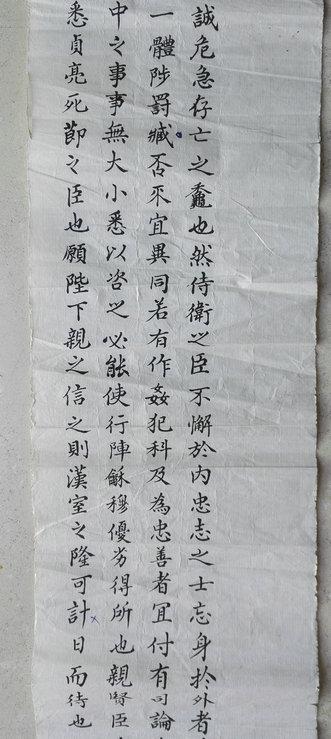 誠危急存亡之龝也然侍衛之臣不懈於內忠志之士忘身於外者
一體陟罰臧否不宜異同若有作姦犯科及為忠善者宜付有司論
中之事事無大小悉以咨之必能使行陣龢穆優劣得所也親賢臣
悉貞亮死節之臣也願陛下親之信之則漢室之隆可計日而待也